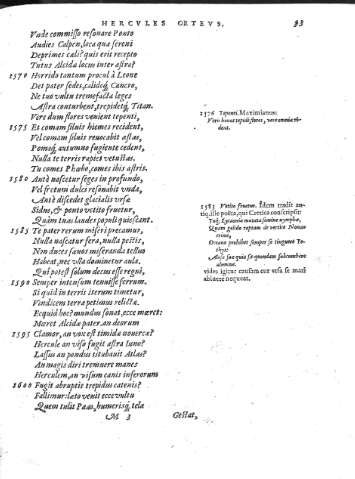 HERCVLES OETEVS. 93
Vade commisso resonare Ponto
Audies Calpen, loca qua sereni
Deprimes cæli? quis erit recepto
Tutus Alcida locus inter astra?
1570 Horrido tantum procul à Leone
Det pater sedes, calidoq; Cancro,
Ne tuo vultu tremefacta leges
Astra conturbent, trepidetq; Titan.
Vere dum flores venient tepenti,
1575 Et comam siluis hiemes recident,
Vel comam siluis reuocabit æstas,
Pomaq; autumno fugiente cedent,
Nulla te terris rapiet vetustas.
Tu comes Phœbo, comes ibis astris.
1580 Antè nascetur seges in profundo,
Vel fretum dulci resonabit vnda,
Antè descedet glacialis vrsæ
Sidus, & ponto vetito fruetur,
Quàm tuas laudes populi quiescant.
1585 Te pater rerum miseri precamur,
Nulla nascatur fera, nulla pestis,
Non duces sæuos miseranda tellus
Habeat, nec vlla dominetur aula,
Qui potest solum decus esse regni,
1590 Semper intensum tenuisse ferrum.
Si quid in terris iterum timetur,
Vindicem terræ petimus relictæ.
Ecquid hoc? mundus sonat, ecce mæret:
Mæret Alcidæ pater. an deorum
1595 Clamor, an vox est timida nouercæ?
Hercule an viso fugit astra Iuno?
Lassus an pondus titubauit Atlas?
An magis diri tremuere manes
Herculem, an visum canis inferorum
1600 Fugit abruptis trepidus catenis?
Fallimur: læto venit ecce vultu
Quem tulit Pœas, humerisq́; tela
M 3 Gestat,
1576 Tepenti Maximianus.
1583 Vetito fruetur.
videa igitur causam cur vrsa se mari
abluere nequeat.